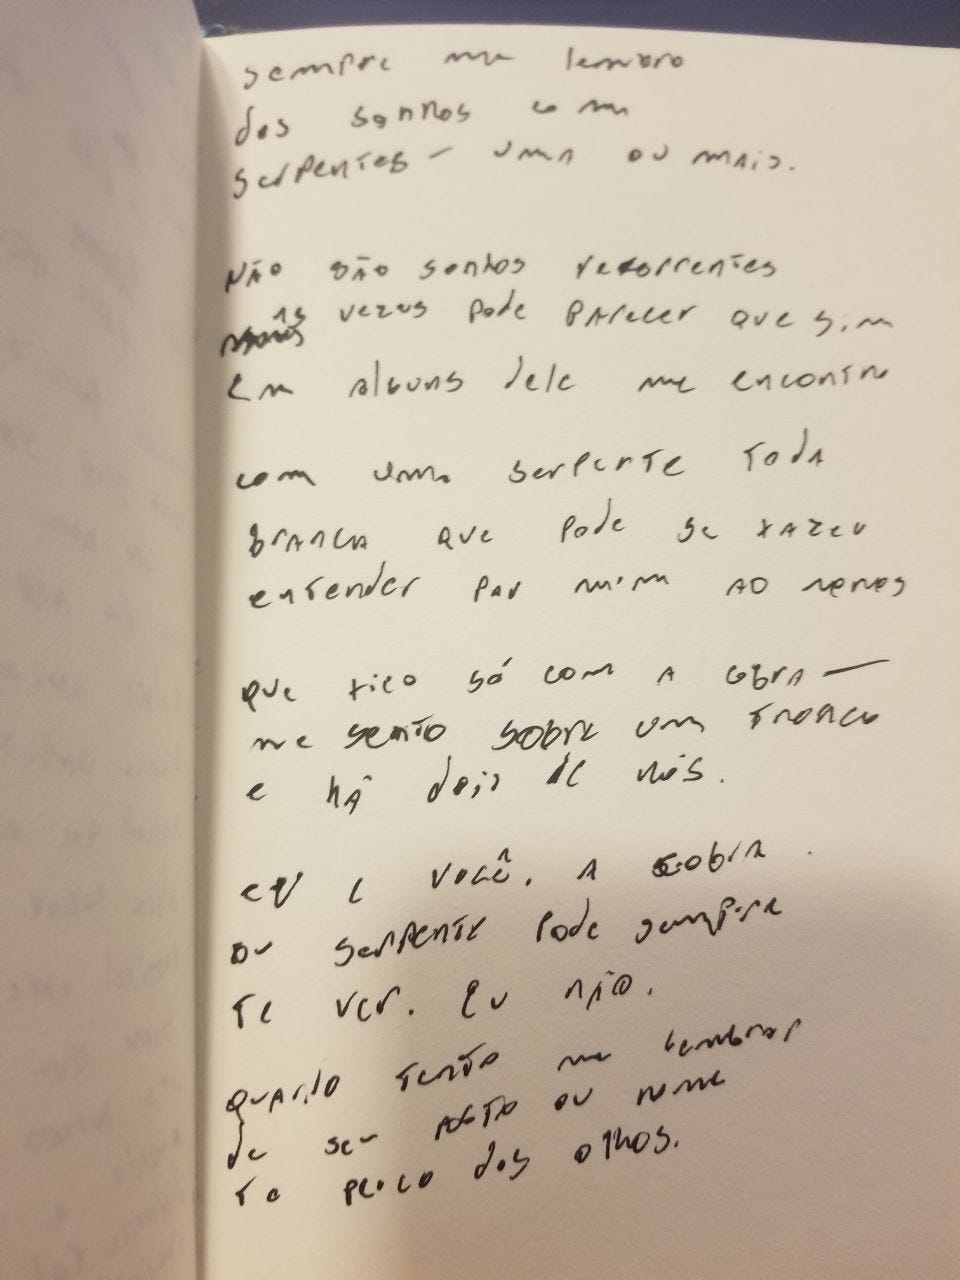 sempre me lembro
dos sonhos com
serpentes - uma ou mais.
Não são sonhos recorrentes
às vezes pode parecer que sim
em alguns dele me encontro
com uma serpente toda
branca que pode se fazer
entender por mim ao menos
que fico só com a cobra —
me sento sobre um tronco
e há dois de nós.
eu e você. A cobra
ou serpente pode sempre
te ver. Eu não.
Quando tento me lembrar
de seu rosto ou nome
te perco dos olhos.